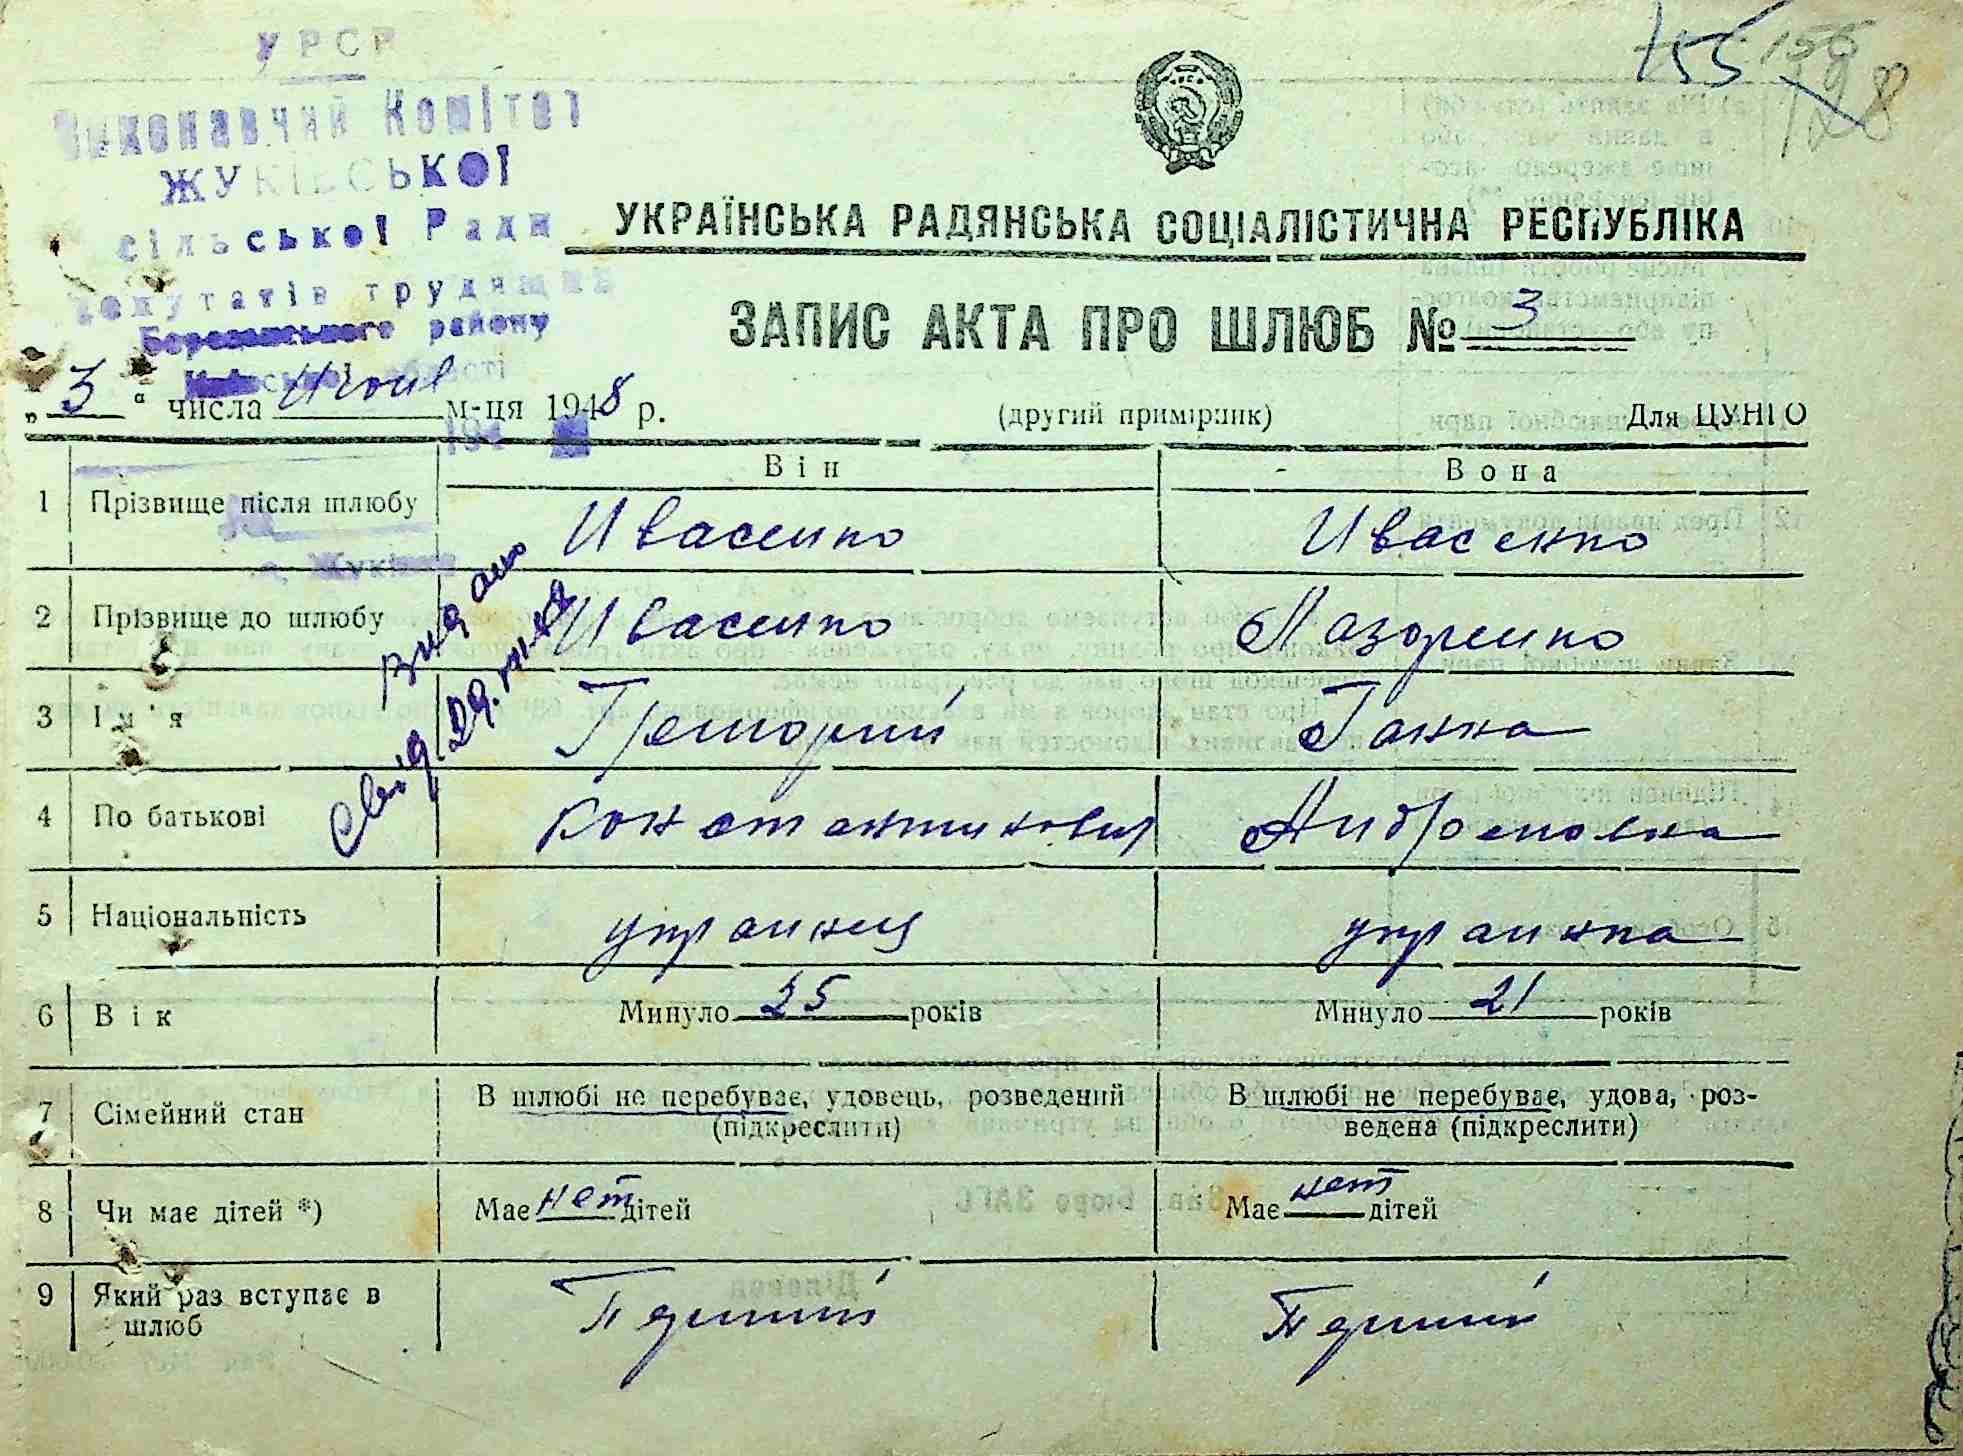 УРСР
Виконавчий Комітет
ЖУКІВСЬКОЇ
сільської Ради
депутатів трудящих
Березанського району
Київської області
155 156
128
УКРАЇНСЬКА РАДЯНСЬКА СОЦІАЛІСТИЧНА РЕСПУБЛІКА
ЗАПИС АКТА ПРО ШЛЮБ № 3
„ 3 “ числа Июня м-ця 1948 р. (другий примірник) Для ЦУНГО
194
Він Вона
1 Прізвище після шлюбу Ивасенко Ивасенко
с. Жуківка
2 Прізвище до шлюбу Ивасенко Лазоренко
3 Ім'я Григорий Ганна
Видано
свид 29.
4 По батькові Константинович Амбросиовна
5 Національність украинец украинка
6 Вік Минуло 25 років Минуло 21 років
7 Сімейний стан В шлюбі не перебуває, удовець, розведений В шлюбі не перебуває, удова, роз-
(підкреслити) ведена (підкреслити)
8 Чи має дітей *) Має нет дітей Має нет дітей
9 Який раз вступає в Первий Первий
шлюб